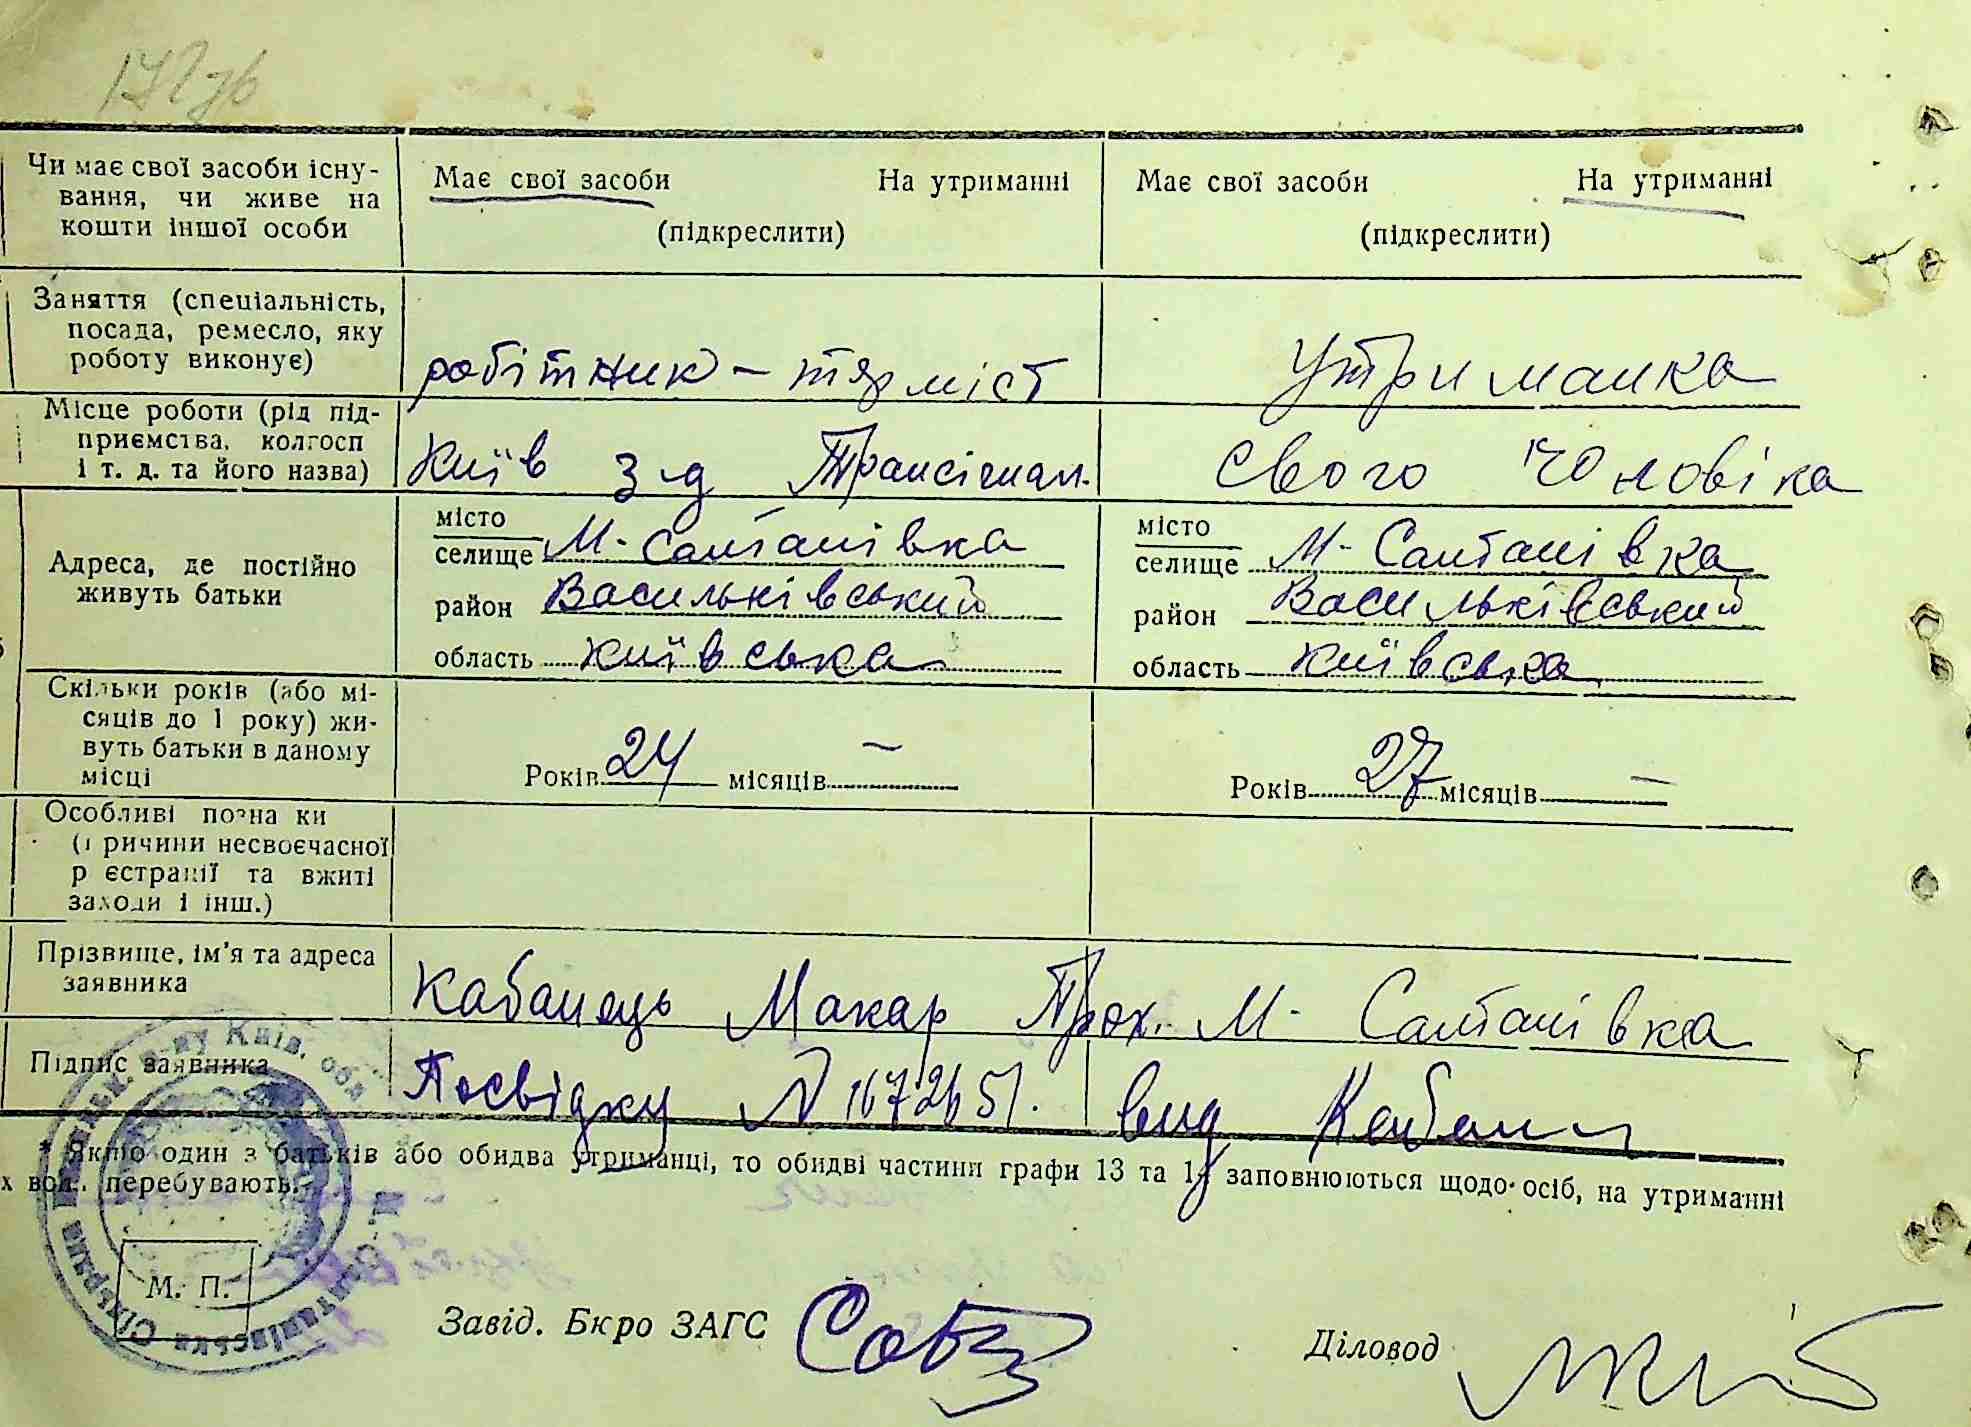 172зв
Чи має свої засоби існу-
вання, чи живе на
кошти іншої особи
Має свої засоби На утриманні
(підкреслити)
Має свої засоби На утриманні
(підкреслити)
Заняття (спеціальність,
посада, ремесло, яку
роботу виконує)
робітник - терміст
утриманка
Місце роботи (рід під-
приємства, колгосп
і т. д. та його назва)
Київ з-д Трансігнал.
свого чоловіка
Адреса, де постійно
живуть батьки
місто
селище М-Салтанівка
район Васильківський
область Київська
місто
селище М-Салтанівка
район Васильківський
область Київська
Скільки років (або мі-
сяців до 1 року) жи-
вуть батьки в даному
місці
Років 24 місяців —
Років 27 місяців —
Особливі позна ки
(причини несвоєчасної
р єстрації та вжиті
заходи і інш.)
Прізвище, ім'я та адреса
заявника
Кабанець Макар Прох. М-Салтанівка
Підпис заявника
Посвідку №
* Якщо один з батьків або обидва утриманці, то обидві частини графи 13 та 14 заповнюються щодо осіб, на утриманні
х вон. перебувають.
М. П.
Завід. Бюро ЗАГС
Діловод